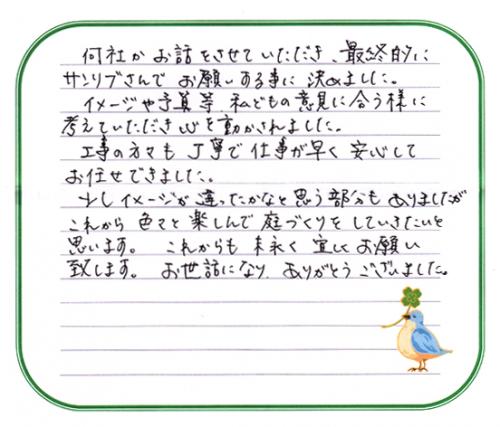 何社か お話をさせていただき、最終的に
サンリブさんで お願いする事に 決めました。
イメージや予算等、私どもの意見に合う様に
考えていただき 心を動かされました。
工事の方々も 丁寧で 仕事が早く 安心して
お任せできました。
少しイメージが違ったかなと思う部分も ありましたが
これから 色々と楽しんで 庭づくりを していきたいと
思います。 これからも 末永く 宜しくお願い
致します。 お世話になり、ありがとう ございました。